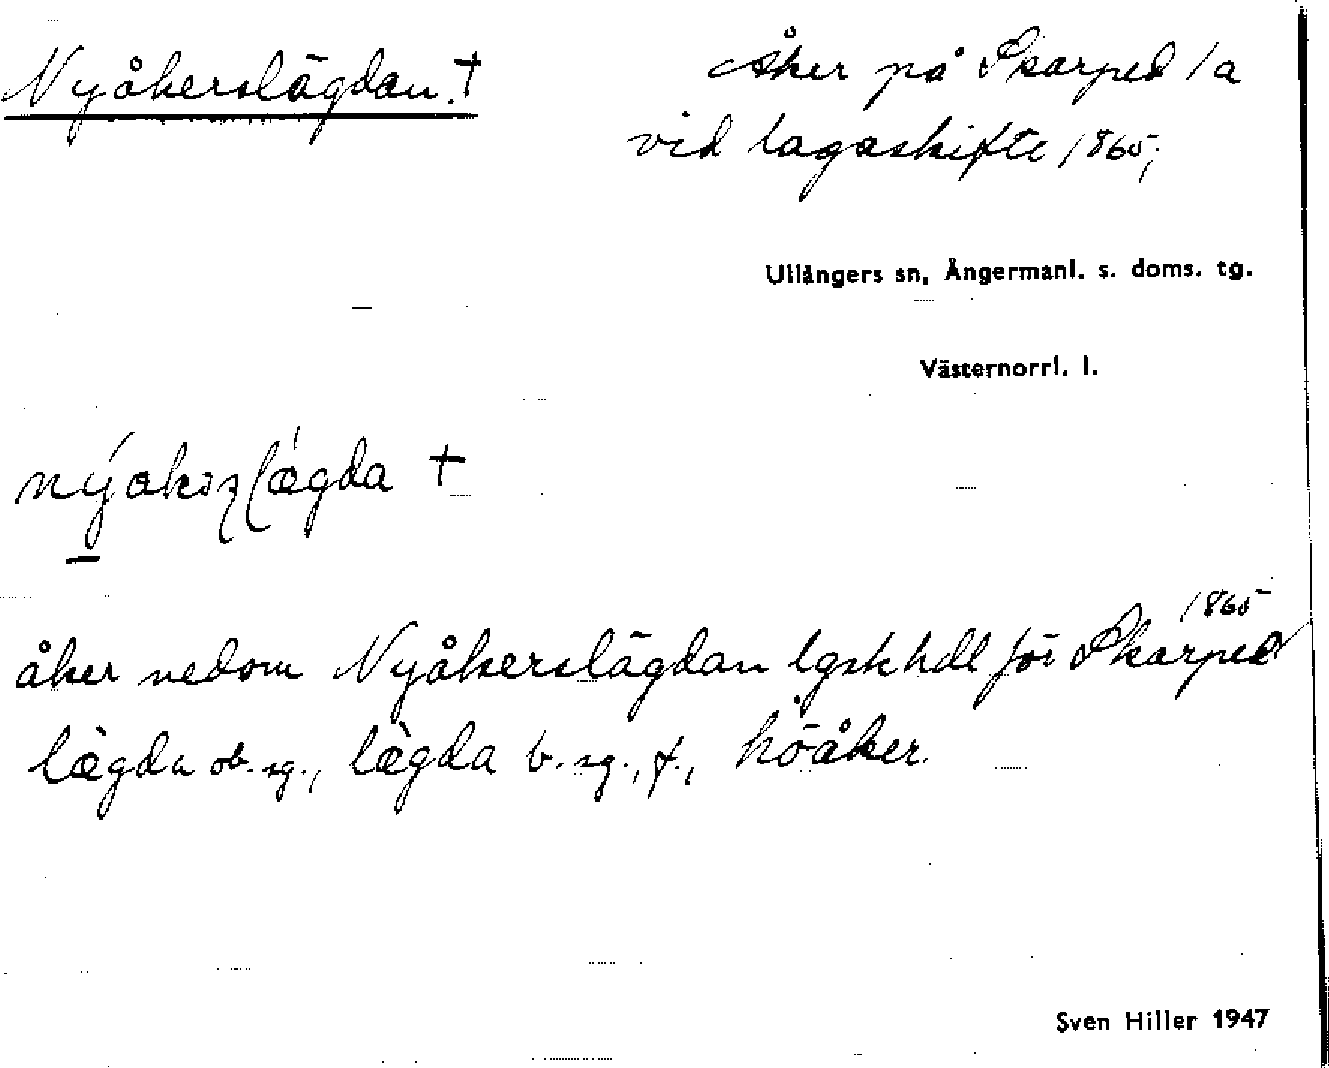 Nyåkerslägdan. †
Åker på Skarped 1a
vid lagaskifte 1865;
Ullångers sn, Ångermanl. s. doms. tg.
Västernorrl. l.
†
1865
åker nedom Nyåkerslägdan lgskhdl för Skarped
lægda ob. sg., lægda b. sg., f., höåker.
Sven Hiller 1947